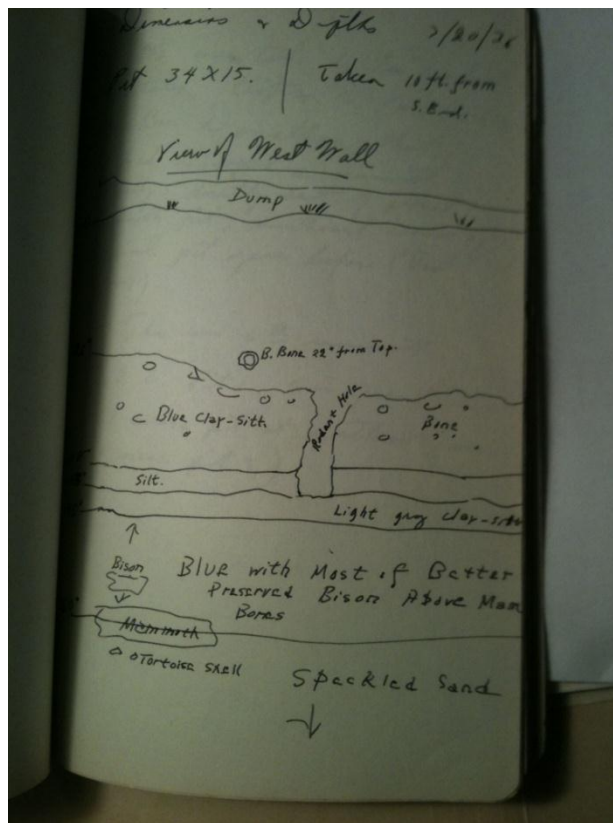 Dimensions & Depths
Pit 34X15. Taken 10 ft. from
S. End.
View of West Wall
Dump
B. Bone 22" from Top.
Rodent Hole
Blue Clay-Silt.
Bone
Silt.
Light gray clay-silt
Bison
Blue with Most of Better
Preserved Bison Above Mam
Bones
Mammoth
Tortoise Shell
Speckled Sand